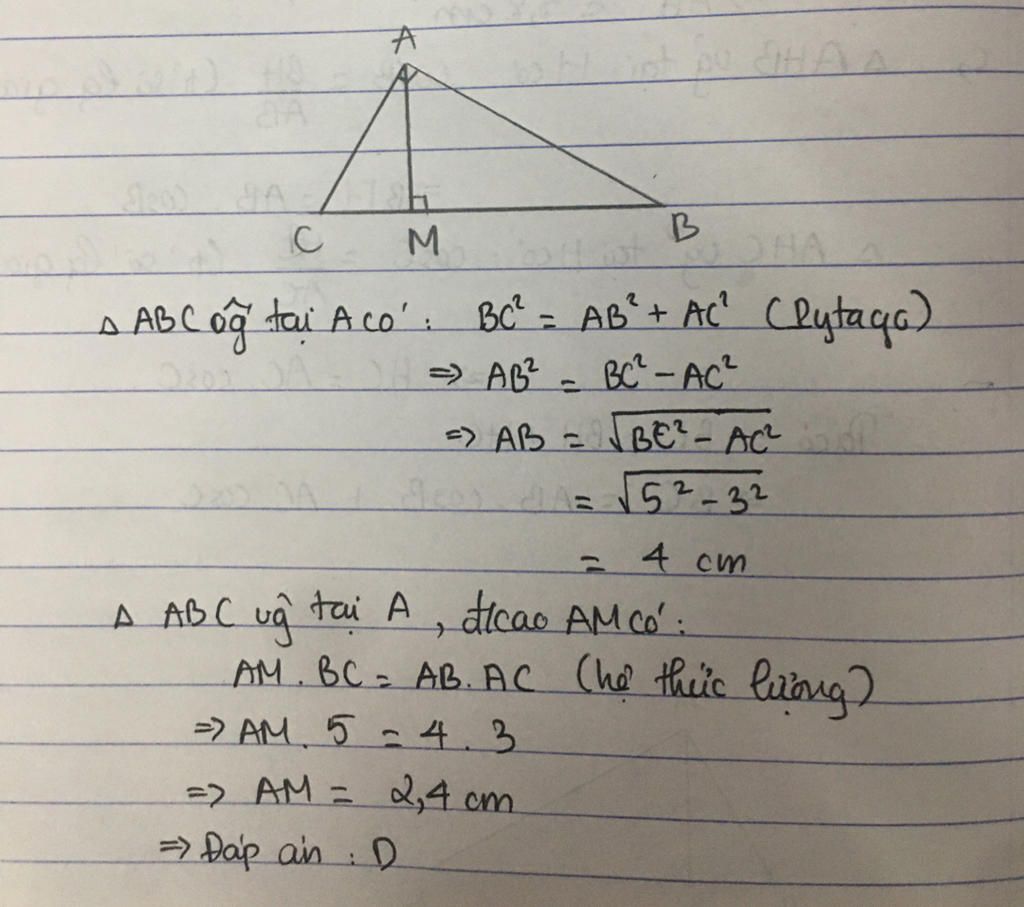 A
C M B
Δ ABC vg̃ tại A có: BC² = AB² + AC² (Pytago)
=> AB² = BC² - AC²
=> AB = √BC² - AC²
= √5² - 3²
= 4 cm
Δ ABC vg̃ tại A, đ/cao AM có:
AM . BC = AB . AC (hệ thức lượng)
=> AM . 5 = 4 . 3
=> AM = 2,4 cm
=> Đáp án : D